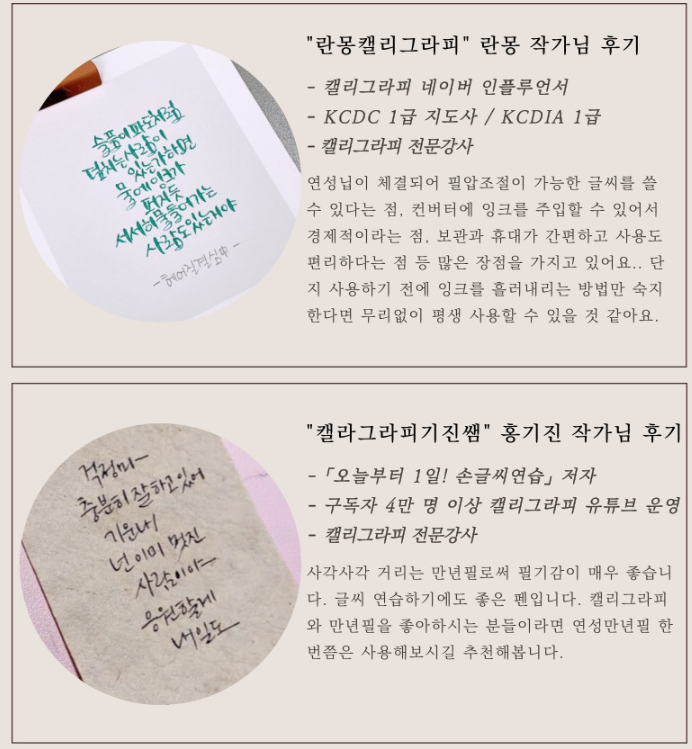 "란몽캘리그라피" 란몽 작가님 후기
- 캘리그라피 네이버 인플루언서
- KCDC 1급 지도사 / KCDIA 1급
- 캘리그라피 전문강사
연성닙이 체결되어 필압조절이 가능한 글씨를 쓸
수 있다는 점, 컨버터에 잉크를 주입할 수 있어서
경제적이라는 점, 보관과 휴대가 간편하고 사용도
편리하다는 점 등 많은 장점을 가지고 있어요.. 단
지 사용하기 전에 잉크를 흘러내리는 방법만 숙지
한다면 무리없이 평생 사용할 수 있을 것 같아요.
슬픔이 파도처럼
덮치는 사람이
있는가 하면
물에 잉크가
퍼지듯
서서히 물들어가는
사람도 있는거야
- 헤어질결심中 -
"캘라그라피기진쌤" 홍기진 작가님 후기
- 「오늘부터 1일! 손글씨연습」 저자
- 구독자 4만 명 이상 캘리그라피 유튜브 운영
- 캘리그라피 전문강사
사각사각 거리는 만년필로써 필기감이 매우 좋습니
다. 글씨 연습하기에도 좋은 펜입니다. 캘리그라피
와 만년필을 좋아하시는 분들이라면 연성만년필 한
번쯤은 사용해보시길 추천해봅니다.
걱정마~
충분히 잘하고 있어
기운내
넌 이미 멋진
사람이야~
응원할게
내일도